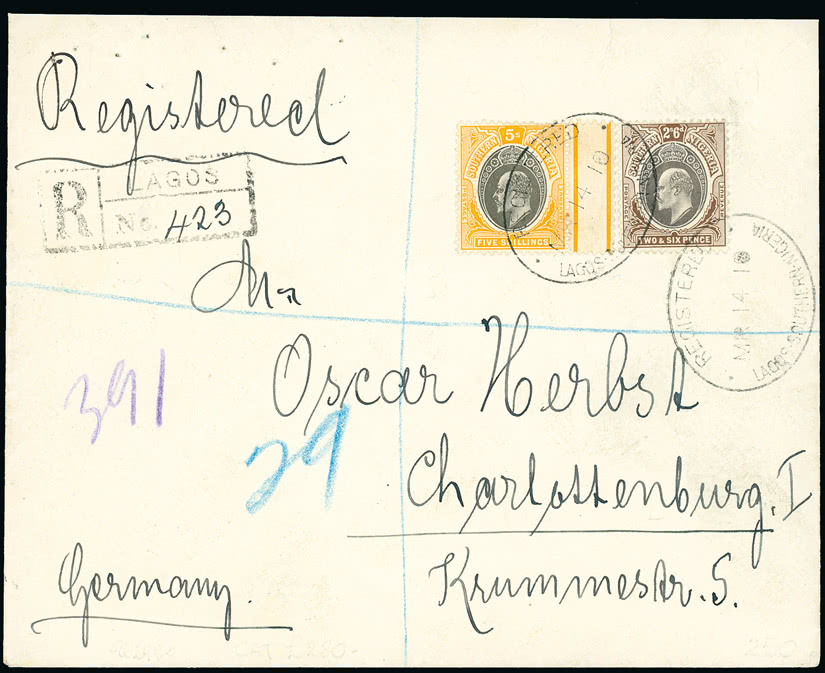 Registered
R LAGOS
No. 423
5s
SOUTHERN NIGERIA
POSTAGE
FIVE SHILLINGS
2s6d
SOUTHERN NIGERIA
POSTAGE
TWO & SIX PENCE
REGISTERED
14 10
LAGOS
REGISTERED
MR 14 10
LAGOS SOUTHERN NIGERIA
Mr
Oscar Herbst
Charlottenburg. I
Krummestr. 5.
391
29
Germany.